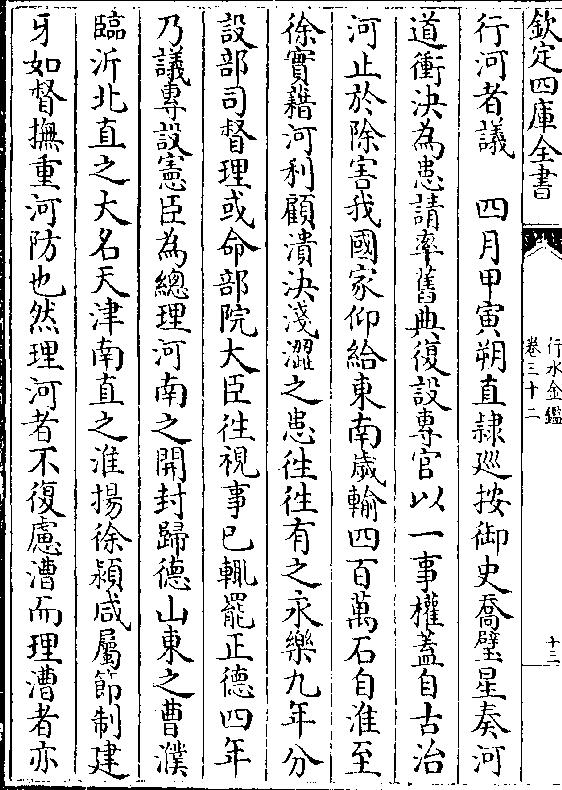 欽定四庫全書
行水金鑑
卷三十二
十三
行河者議　四月甲寅朔直隸廵按御史喬璧星奏河
道衝決為患請率舊典復設專官以一事權蓋自古治
河止於除害我國家仰給東南歲輸四百萬石自淮至
徐實藉河利顧潰決淺澀之患徃徃有之永樂九年分
設部司督理或命部院大臣徃視事已輒罷正德四年
乃議專設憲臣為總理河南之開封歸德山東之曹濮
臨沂北直之大名天津南直之淮揚徐潁咸屬節制建
牙如督撫重河防也然理河者不復慮漕而理漕者亦